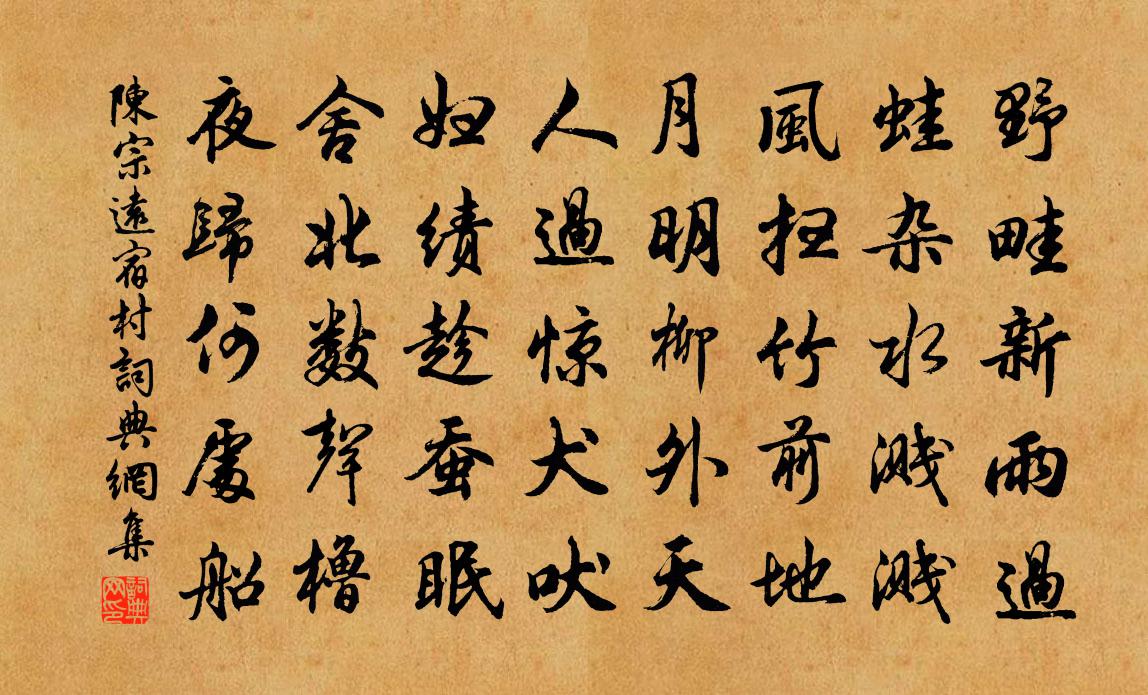 野畦新雨過
蛙杂水濺濺
風扫竹前地
月明柳外天
人過惊犬吠
妇绩趁蚕眠
舍北數聲櫓
夜歸何處船
陳宗遠宿村詞典網集
詞典网印